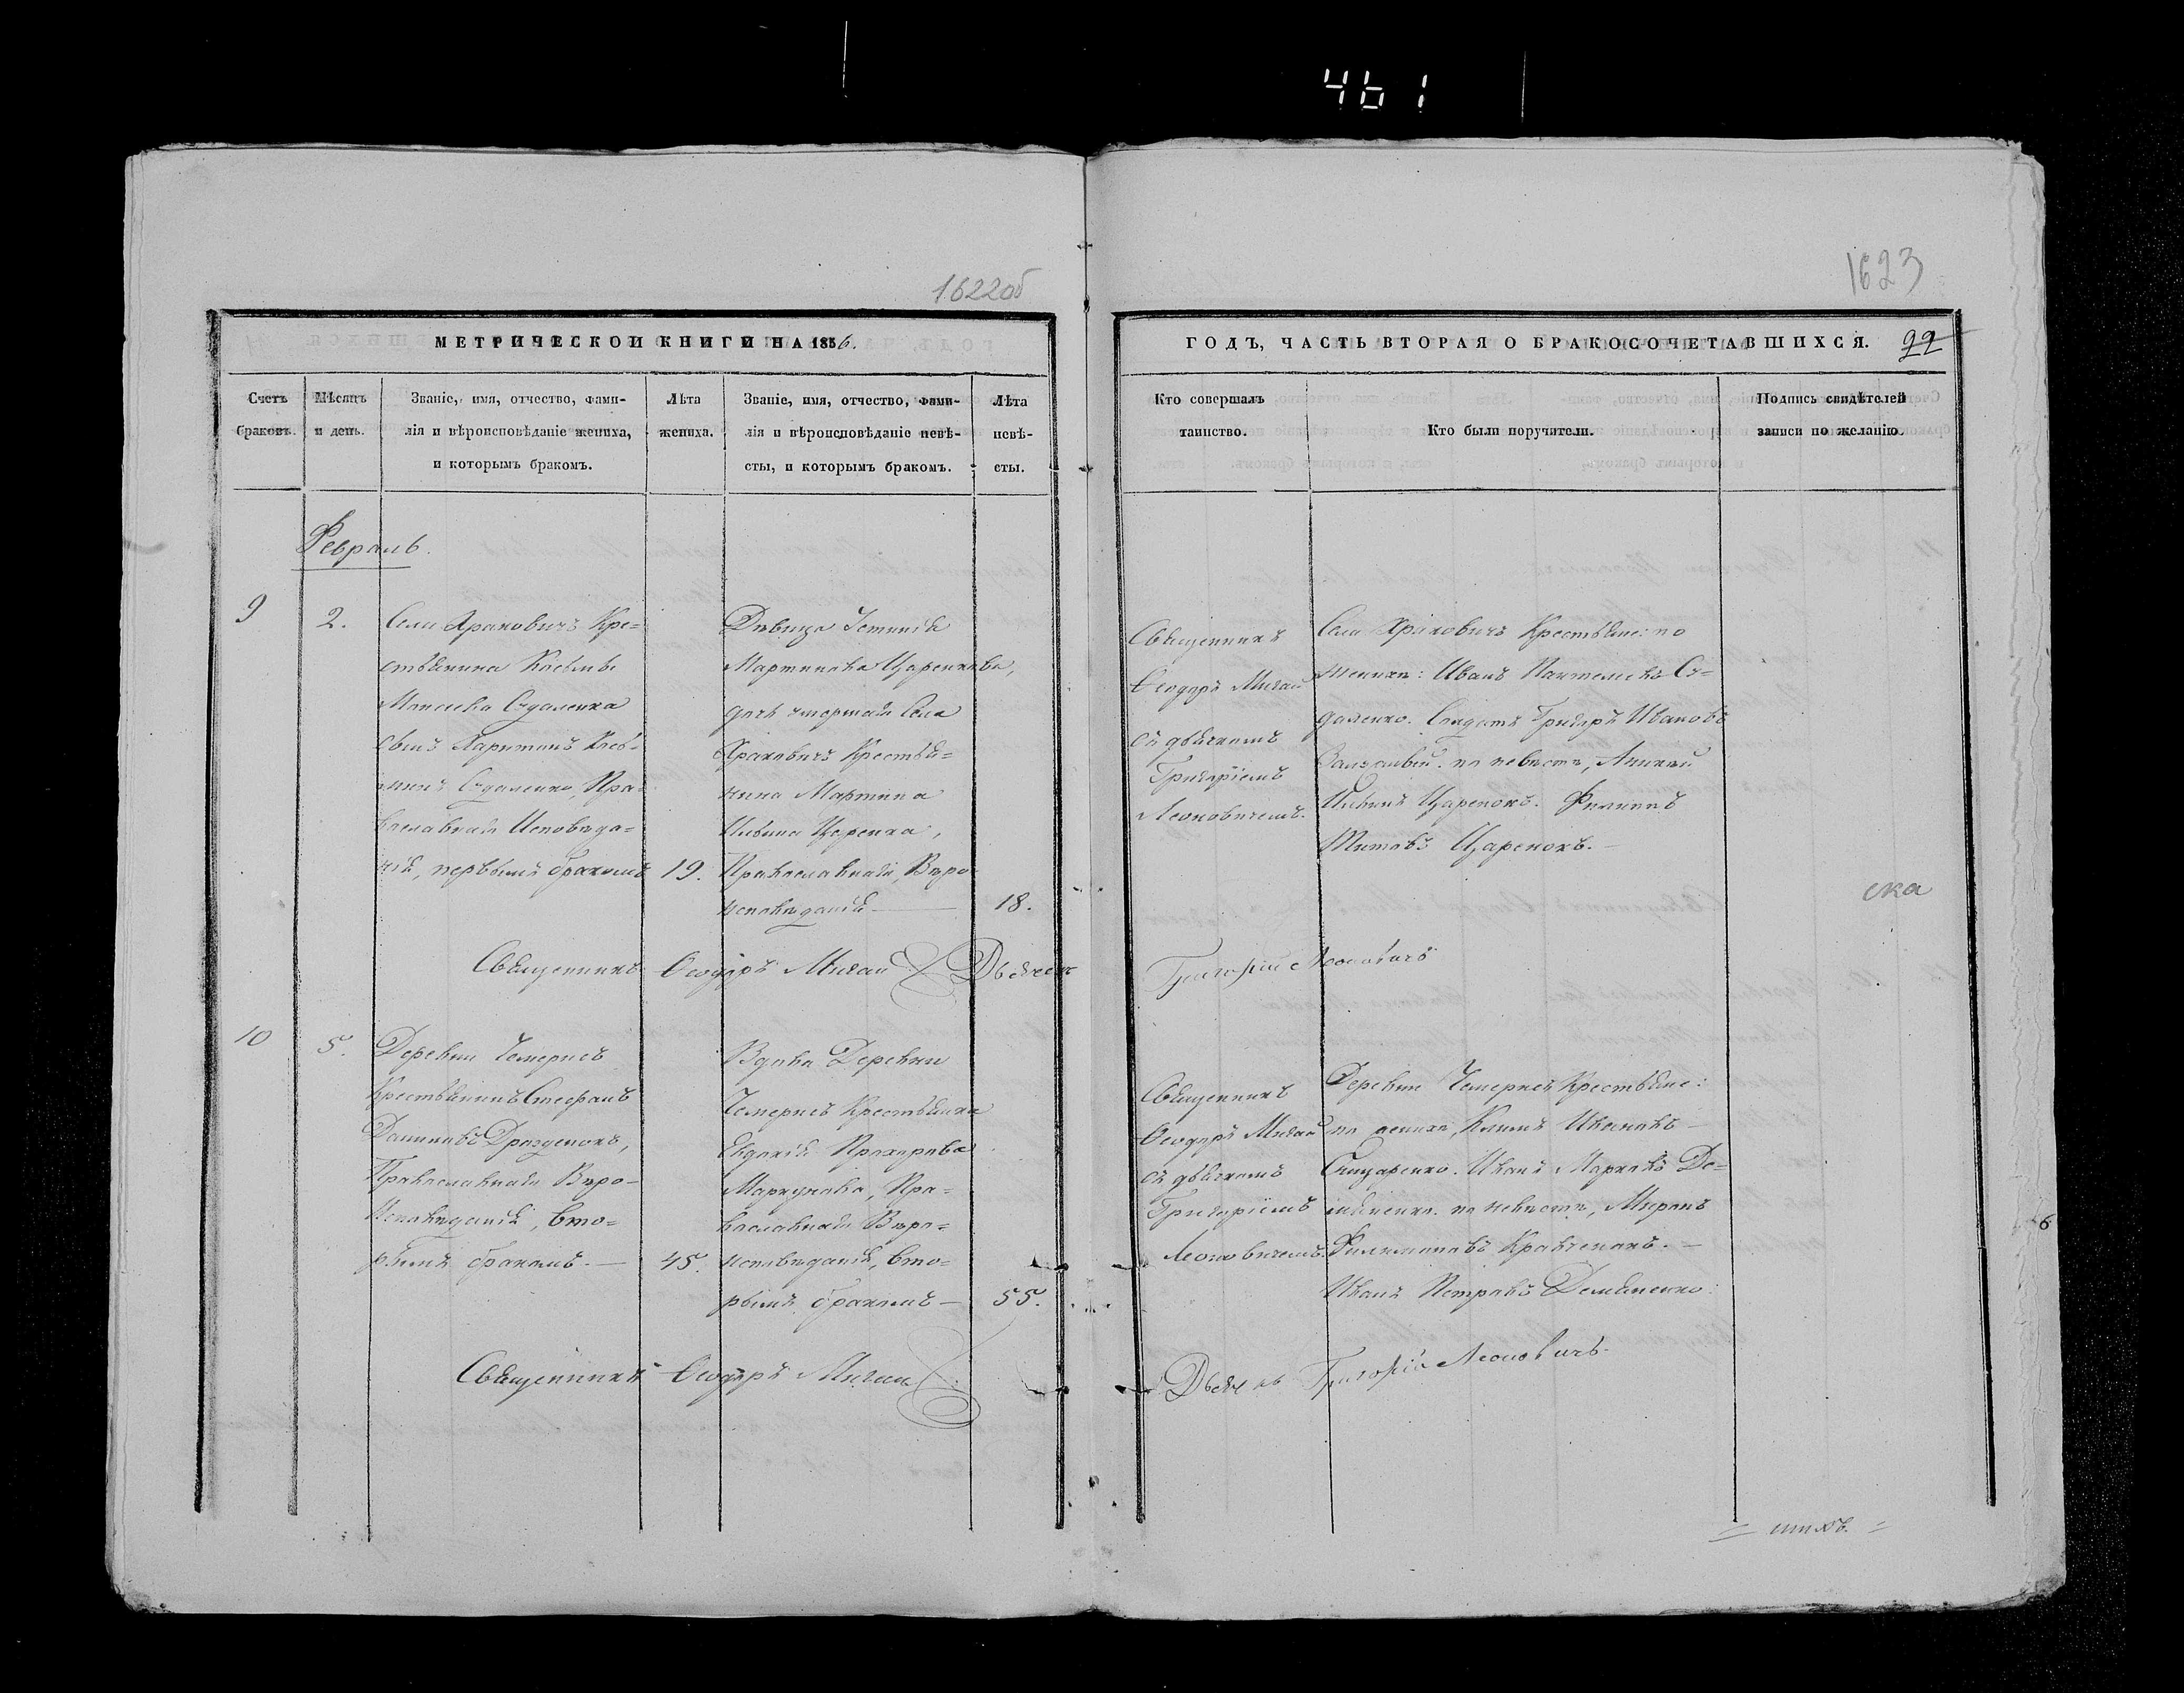 461
1622об
1623
МЕТРИЧЕСКОЙ КНИГИ НА 1856.
ГОДЪ, ЧАСТЬ ВТОРАЯ О БРАКОСОЧЕТАВШИХСЯ.
22
Счетъ браковъ.
Мѣсяцъ и день.
Званіе, имя, отчество, фами-
лія и вѣроисповѣданіе жениха,
и которымъ бракомъ.
Лѣта
жениха.
Званіе, имя, отчество, фами-
лія и вѣроисповѣданіе невѣ-
сты, и которымъ бракомъ.
Лѣта
невѣ-
сты.
Кто совершалъ
таинство.
Кто были поручители.
Подпись свидѣтелей
записи по желанію.
Февраль.
9
2.
Села Храковичъ Кре=
стьянина
Моисеева Судаленка
сынъ Харитонъ
Судаленко, Пра=
вославнаго Исповѣда=
нія, первымъ бракомъ
19.
Дѣвица Устинія
Мартинова Царенкова,
дочь умершаго Села
Храковичъ Крестья=
нина Мартина
Царенка,
Православнаго Вѣро-
исповѣданія
18.
Священникъ
Ѳеодоръ Мигай
съ дьячкомъ
Григоріемъ
Леоновичемъ.
Села Храковичъ Крестьяне: по
женихѣ: Иванъ Пантелеевъ Су=
даленко. Солдатъ Григорій Ивановъ
по невѣстѣ,
Царенокъ. Филиппъ
Титовъ Царенокъ.
ска
Священникъ Ѳеодоръ Мигай Дьячекъ
Григорій Леоновичъ
10
5.
Деревни Чемерисъ
Крестьянинъ Стефанъ
Даниловъ Дрозденокъ,
Православнаго Вѣро-
исповѣданія, вто=
рымъ бракомъ.
45.
Вдова Деревни
Чемерисъ Крестьянка
Евдокія Прохорова
Православнаго Вѣро=
исповѣданія, вто=
рымъ бракомъ
55.
Священникъ
Ѳеодоръ Мигай
съ дьячкомъ
Григоріемъ
Леоновичемъ.
Деревни Чемерисъ Крестьяне:
по женихѣ, Климъ Ивановъ
Иванъ Марковъ Де=
мьяненко. по невѣстѣ, Миронъ
Филимоновъ Кравченокъ.
Иванъ Петровъ Демьяненко:
Священникъ Ѳеодоръ Мигай
Дьячекъ Григорій Леоновичъ.
6